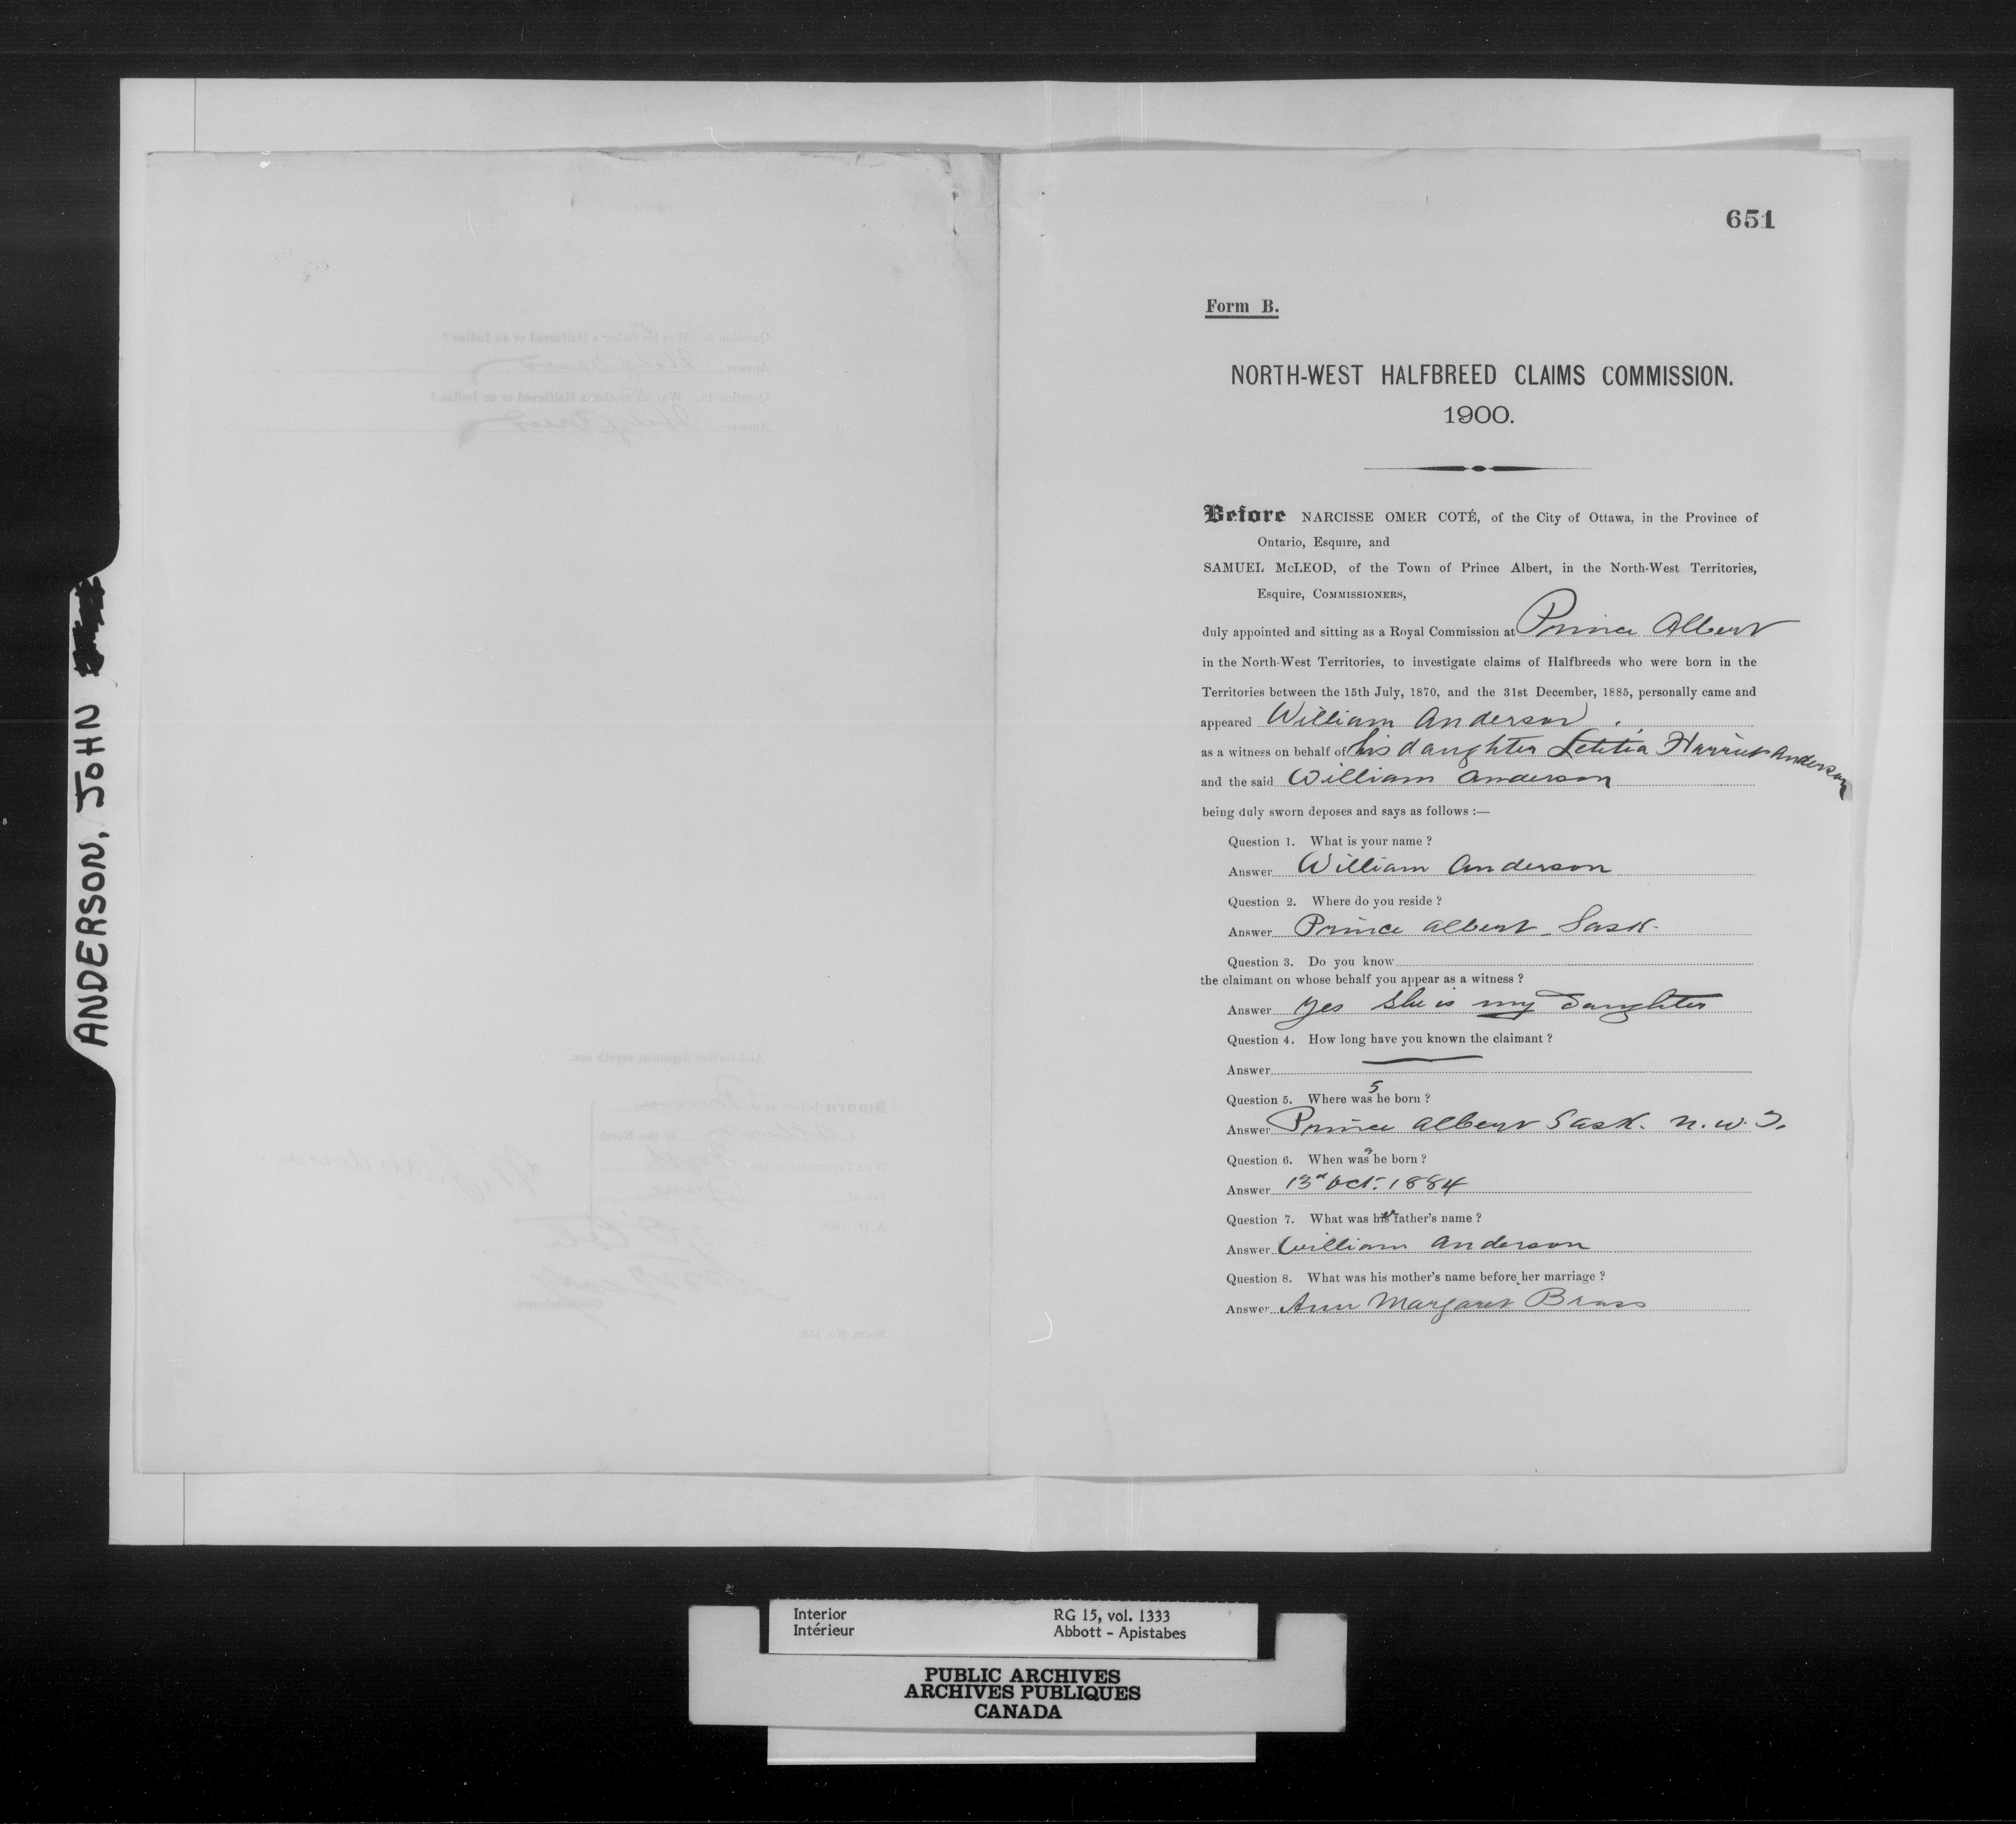 ANDERSON, JOHN
651
Form B.
NORTH-WEST HALFBREED CLAIMS COMMISSION.
1900.
Before NARCISSE OMER COTÉ, of the City of Ottawa, in the Province of
Ontario, Esquire, and
SAMUEL McLEOD, of the Town of Prince Albert, in the North-West Territories,
Esquire, COMMISSIONERS,
duly appointed and sitting as a Royal Commission at Prince Albert
in the North-West Territories, to investigate claims of Halfbreeds who were born in the
Territories between the 15th July, 1870, and the 31st December, 1885, personally came and
appeared William Anderson
as a witness on behalf of his daughter Letitia Harriet Anderson
and the said William Anderson
being duly sworn deposes and says as follows :—
Question 1. What is your name ?
Answer William Anderson
Question 2. Where do you reside ?
Answer Prince Albert Sask.
Question 3. Do you know
the claimant on whose behalf you appear as a witness ?
Answer Yes She is my daughter
Question 4. How long have you known the claimant ?
Answer
Question 5. Where was she born ?
Answer Prince Albert Sask. N.W.T.
Question 6. When was she born ?
Answer 13d Oct. 1884
Question 7. What was her father's name ?
Answer William Anderson
Question 8. What was his mother's name before her marriage ?
Answer Ann Margaret Brass
Question 9. Was his father a Halfbreed or an Indian ?
Answer
Question 10. Was his mother a Halfbreed or an Indian ?
Answer
And further deponent sayeth not.
Sworn before us at Prince
Albert in the North-
West Territories on the
day of June
A. D. 1900
Commissioners.
Form No. 102.
Interior
Intérieur
RG 15, vol. 1333
Abbott - Apistabes
PUBLIC ARCHIVES
ARCHIVES PUBLIQUES
CANADA